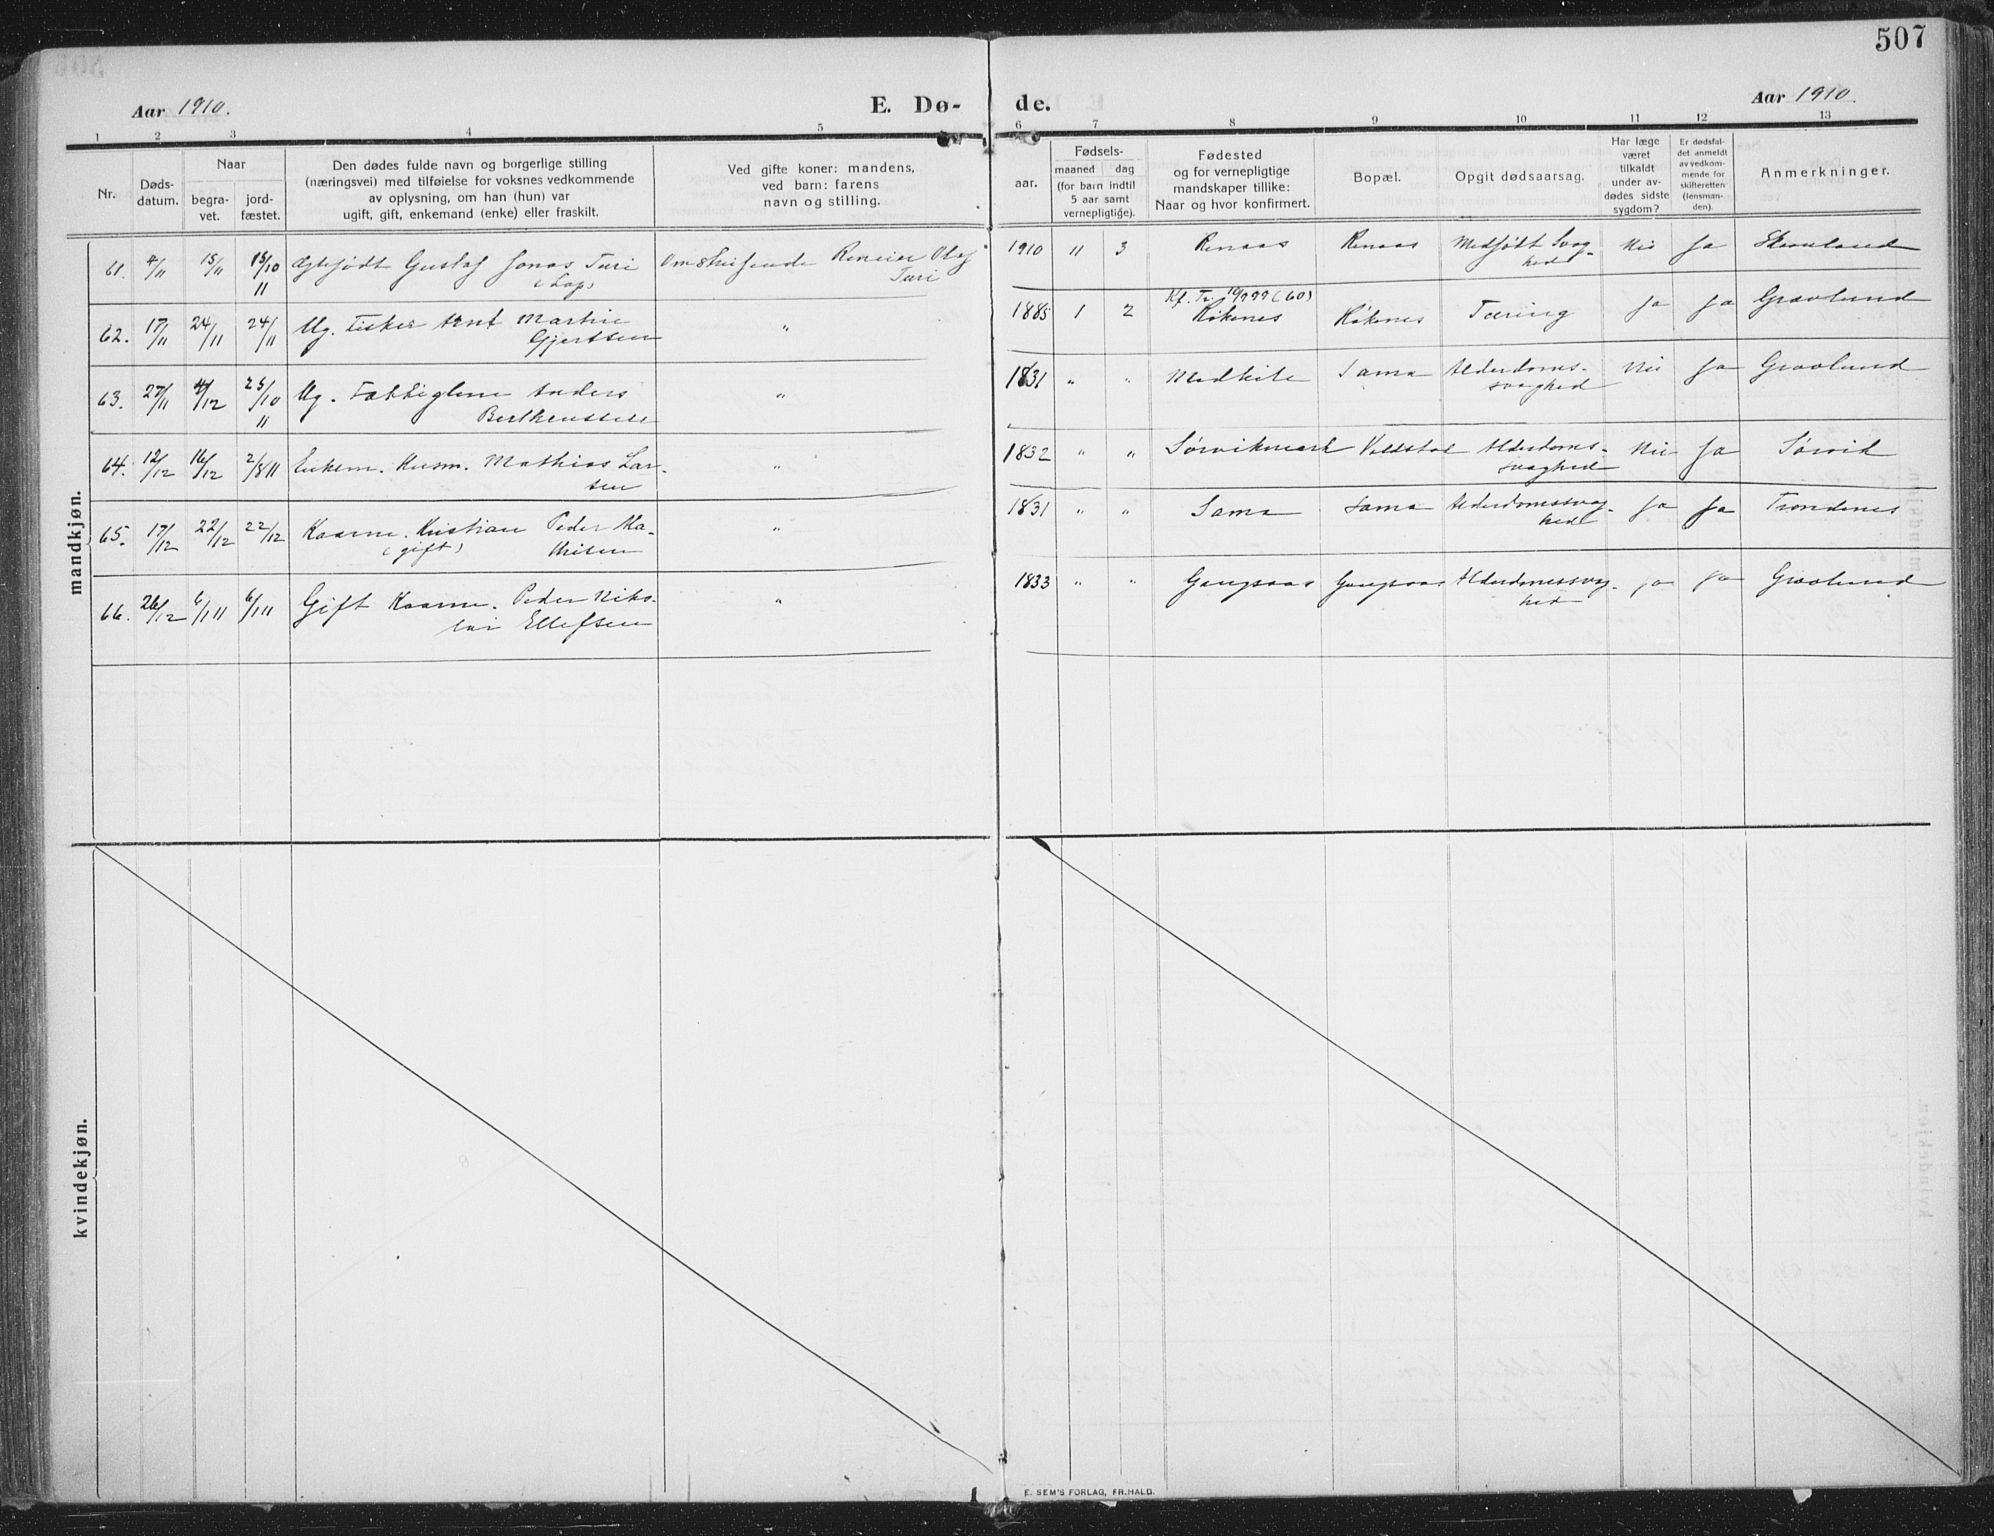 507
Aar 1910.
E. Dø-
de.
Aar 1910.
1 2 3 4 5 6 7 8 9 10 11 12 13
Nr.
Døds-
datum.
Naar
begra-
vet.
jord-
fæstet.
Den dødes fulde navn og borgerlige stilling
(næringsvei) med tilføielse for voksnes vedkommende
av oplysning, om han (hun) var
ugift, gift, enkemand (enke) eller fraskilt.
Ved gifte koner: mandens,
ved barn: farens
navn og stilling.
Fødsels-
aar.
maaned dag
(for barn indtil
5 aar samt
vernepligtige).
Fødested
og for vernepligtige
mandskaper tillike:
Naar og hvor konfirmert.
Bopæl.
Opgit dødsaarsag.
Har læge
været
tilkaldt
under av-
dødes sidste
sygdom?
Er dødsfal-
det anmeldt
av vedkom-
mende for
skifteretten
(lensman-
den).
Anmerkninger.
mandkjøn.
61. 4/11 15/11 15/10 11 Ægtefødt Gustaf Jonas Turi Omstreifende Olaf 1910 11 3 Renaas Renaas Medfødt Svag- Nei Ja Skaanland
(Lap) Turi hed
Kf. Tr. (60)
62. 17/11 24/11 24/11 Ug. Fisker Arnt Martin " 1885 1 2 Røkenes Røkenes Tæring Ja Ja Gravlund
Gjertsen
63. 27/11 4/12 25/10 11 Ug. Fattiglem Anders " 1831 " " Medkila Sama Alderdoms- Nei Ja Gravlund
Bertheussen svaghed
64. 12/12 16/12 2/8 11 Enkem. Husm. Mathias Lar- " 1832 " " Sørvikmark Voldstad Alderdoms- Nei Ja Sørvik
sen svaghed
65. 17/12 22/12 22/12 Kaarm. Kristian Peder Ma- " 1831 " " Sama Sama Alderdomssvag- Ja Ja Trondenes
(gift) thisen hed
66. 26/12 6/1 11 6/1 11 Gift Kaarm. Peder Niko- " 1833 " " Gangsaas Gangsaas Alderdomssvag- ja ja Gravlund
lai Ellefsen hed
kvindekjøn.
E. SEM'S FORLAG, FR.HALD.